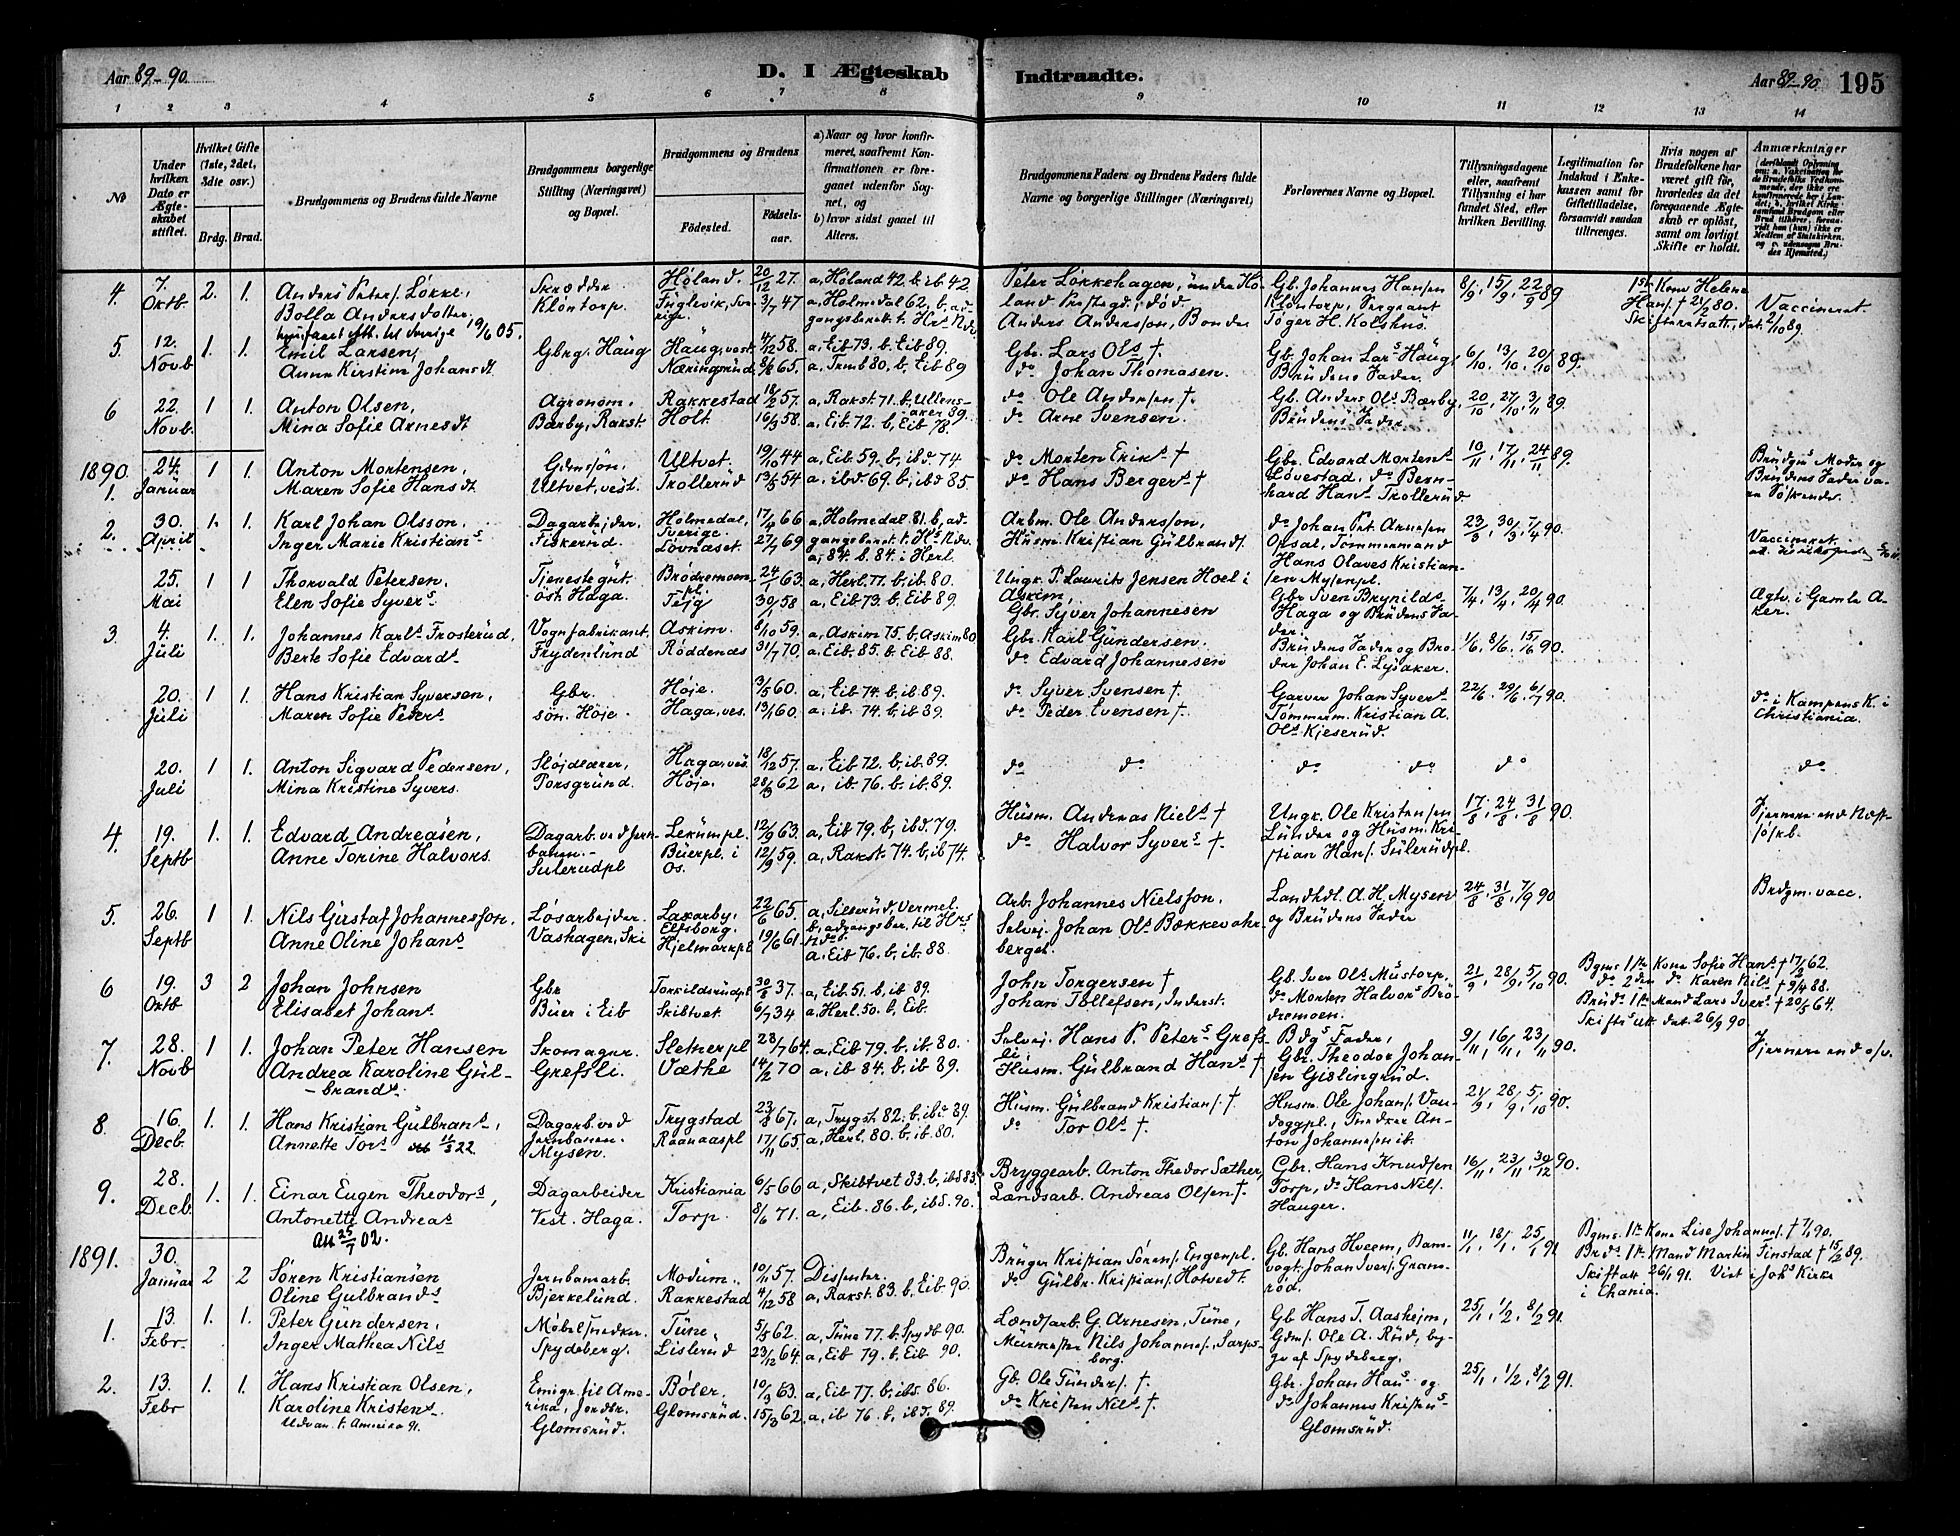 Aar 89-90.
D. I Ægteskab Indtraadte.
Aar 89-90. 195
1 2 3 4 5 6 7 8 9 10 11 12 13 14
No
Under hvilken Dato er Ægteskabet stiftet.
Hvilket Gifte (1ste, 2det, 3die osv.)
Brdg. Brud.
Brudgommens og Brudens fulde Navne
Brudgommens borgerlige Stilling (Næringsvei) og Bopæl.
Brudgommens og Brudens
Fødested.
Fødselsaar.
a) Naar og hvor konfirmeret, saafremt Konfirmationen er foregaaet udenfor Sognet, og
b) hvor sidst gaaet til Alters.
Brudgommens Faders og Brudens Faders fulde Navne og borgerlige Stillinger (Næringsvei)
Forlovernes Navne og Bopæl.
Tillysningsdagene eller, saafremt Tillysning ei har fundet Sted, efter hvilken Bevilling.
Legitimation for Indskud i Enkekassen samt for Giftetilladelse, forsaavidt saadan tiltrænges.
Hvis nogen af Brudefolkene har været gift før, hvorledes da det foregaaende Ægteskab er opløst, samt om lovligt Skifte er holdt.
Anmærkninger
4. 7. Oktb 2. 1. Anders Peters. Løkke, Skrædder Høland. 20/12 27. a, Høland 42. b, ib 42 Peter Løkkehagen, under Høland Prstegd., død. Gb. Johannes Hansen 8/9, 15/9, 22/9 89 1ste Kone Helene
Bolla Andersdotter. Kløntorp. 3/7 47 a, Holmedal 62, b, ad- Anders Andersson, Bonde Kløntorp, Sergeant Tøger H. Kolshus. Hans. † 21/2 80. Vaccineret.
Skifteretsatt. dat. 2/10 89.
19/6 05.
5. 12. Novb 1. 1. Emil Larsen, Gbrg. Haug Haug, vest. 4/12 58. a, Eib 73. b, Eib 89. Gbr. Lars Ols. †. Gb. Johan Lars. Haug, 6/10, 13/10, 20/10 89.
Anne Kirstine Johansdt. Næringsrud 65. a, Trmb 80. b, Eib 89 do Johan Thomasen. Brudens Fader.
6 22. Novb. 1 1. Anton Olsen, Agronom. Rakkestad 18/2 57. a, Rakst. 71. b, Ullensaker 89. do Ole Andersen †. Gb. Anders Ols. Bærby, 20/10, 27/10, 3/11 89.
Mina Sofie Arnesdt Bærby, Rakst. Holt. 16/3 58. a, Eib. 72. b, Eib 78. do Arne Svensen. Brudens Fader.
1890. 1. 24. Januar 1 1. Anton Mortensen, Gdmssøn. Ultvet. 19/10 44 a, Eib. 59. b, ibd. 74 do Morten Eriks. † Gbr. Edvard Mortens. 10/11, 17/11, 24/11 89. Brudgms Moder og
Maren Sofie Hansdt Ultvet, vest. Trollerud 13/5 54 a, ibd. 69. b, ibd 85. do Hans Bergers. † Løvestad, do Bernhard Hans. Trollerud Brudens Fader vare Søskende.
2. 30. April 1. 1. Karl Johan Olsson, Dagarbejder. Holmedal, Sverige. 17/4 66 a, Holmedal. 81. b, ad- Arbm. Ole Andersson, do Johan Pet. Arnesen 23/3, 30/3, 7/4 90. Vaccineret.
Inger Marie Kristians. Fiskerud. Løvnæset. 27/7 69 a, 84. b. 84. i Herl. Husm. Kristian Gulbrands. Opsal, Tømmermand Hans Olaves Kristiansen Mysenpl.
25. Mai 1 1 Thorvald Petersen. Tjenestegut. Brødremoenpl. 24/1 63. a, Herl. 77. b, ib 80. Ungk. P. Laurits Jensen Hoel i Askim, Gbr. Sven Brynilds. 7/4, 13/4, 20/4 90. Ægtv. i Gamle Aker.
Elen Sofie Syvers. øst. Haga. Tejg 30/ 58 a, Eib 73. b. Eib 89. Gbr. Syver Johannesen Haga og Brudens Fader.
3. 4. Juli 1. 1. Johannes Karls. Frosterud, Vognfabrikant. Askim. 8/10 59. a, Askim 75. b, Askim 80 Gbr. Karl Gundersen. Brudens Fader og Broder Johan E. Lysaker. 1/6, 8/6, 15/6 90.
Berte Sofie Edvards. Frydenlund Røddenæs 31/7 70. a, Eib. 85. b. Eib 88. do Edvard Johannesen
20. Juli 1 1 Hans Kristian Syversen, Gbr.søn. Høje. Høje. 3/5 60. a, Eib 74. b, ib 89. do Syver Svensen †. Garver Johan Syvers. 22/6, 29/6, 6/7 90. do i Kampens K. i Christiania.
Maren Sofie Peters. Haga, ves. 13/1 60. a, ib. 74. b, ib 89. do Peder Evensen †. Tømmerm. Kristian A. Ols. Kjeserud.
20. Juli 1 1. Anton Sigvard Pedersen, Sløjdlærer, Haga, ves. 18/12 57. a, Eib 72. b, ib. 89. do do do do do do
Mina Kristine Syvers. Porsgrund. Høje. 28/3 62 a, ib. 76. b, ib 89.
4. 19. Septb 1. 1. Edvard Andreasen, Dagarb. ved Jernbanen. Lekumpl. 12/9 63. a, Eib 79. b, ibd. 79. Husm. Andreas Niels. † Ungk. Ole Kristensen 17/8, 24/8, 31/8 90. Fjernere end Næstsøskb.
Anne Torine Halvors. Sulerudpl Buerpl. i Os. 12/9 59. a, Rakst. 74. b, ib 74. do Halvor Syvers. †. Lunder og Husm. Kristian Hans. Sulerudpl.
5. 26. Septb 1 1. Nils Gustaf Johannesson. Løsarbejder. Laxarby, Elfsborg. 22/6 65. a, Sillerud, Vermel. Arb. Johannes Nielsson. Landhdl. A. H. Mysen 24/8, 31/8, 7/9 90 Brdgm. vacc.
Anne Oline Johans. Vashagen, Ski Hjelmarkpl 19/6 61. a, Eib 76. b, ib. 88 Selvej. Johan Ols. og Brudens Fader
6 19. Oktb 3 2 Johan Johnsen Gbr. Torkildsrudpl 30/8 37. a, Eib. 51. b, ib 89. John Torgersen † Gb. Iver Ols. Mustorp, 21/9, 28/9, 5/10 90. Bgms 1ste Kone Sofie Hans. † 17/2 62.
Elisabet Johans. Buer i Eib Skibtvet 6/7 34 a, Herl. 50. b, Eib. Johan Tollefsen, Inderst. do Morten Halvors. Brødremoen. do 2den do Karen Nils. † 9/4 88.
Bruds 1ste Mand Lars Ivers. † 20/5 64.
Skifts att. dat. 26/9 90.
7. 28. Novb 1 1. Johan Peter Hansen Skomager. Sletnerpl 23/7 64. a, Eib 79. b, ib. 80. Selvej. Hans P. Peters. Grefsli Bdgs Fader, 9/11, 16/11, 23/11 90. Fjernere end o/v.
Andrea Karoline Gulbrands. Grefsli. Væthe 14/2 70 a, ib 84. b, ib 89. Husm. Gulbrand Hans. † Gbr. Theodor Johansen Gislingrud.
8. 16. Decb. 1. 1. Hans Kristian Gulbrans., Dagarb. ved Trygstad 23/8 67. a, Trygst. 82. b, ibd. 89. Husm. Gulbrand Kristians. † Husm. Ole Johans. 21/9, 28/9, 5/10 90.
Annette Tors. Att 11/3 22. Jernbanen. Mysen. Raanaaspl 17/11 65. a, Herl. 80. b, ib. 80. do Tor Ols. †. Snedker Anton Johannesen ib.
9. 28. Decb. 1. 1. Einar Eugen Theodors., Dagarbeider Kristiania 6/5 66 a, Skibtvet 83. b, ibd 83. Bryggearb. Anton Thedor Sæther, Gbr. Hans Knudsen 16/11, 23/11, 30/12 90.
Antonette Andreas. Vest. Haga. Torp. 8/6 71. a, Eib. 86. b, ibd. 90. Landsarb. Andreas Olsen †. Torp, do Hans Nils. Hauger.
Att 25/7 02.
1891. 30. Januar 2 2 Søren Kristiansen Jernbanearb. Modum. 10/11 57. Dissenter. Bruger Kristian Sørens. Engenpl. Gb. Hans Hveem, Banvogt. Johan Ivers. Gramrød. 11/1, 18/1, 25/1 91 Bgms. 1ste Kone Lise Johannes. † 7/1 90.
Oline Gulbrands. Bjerkelund. Rakkestad 4/12 58 a, Rakst. 83. b, Eib. 90. do Gulbr. Kristians. Hotvedt. Brds. 1ste Mand Martin Finstad † 15/2 89.
Skiftatt 26/1 91. Viet i Johs Kirke i Chania.
1. 13. Febr 1. 1. Peter Gundersen, Møbelsnedker. Tune, 5/5 62. a, Tune 77. b. Spydb 90. Landsarb. G. Arnesen, Tune, Gb Hans T. Aasheim, 25/1, 1/2, 8/2 91.
Inger Mathea Nils Spydeberg. Lislerud 23/12 64. a, Eib 79. b, Eib 90. Murmester Nils Johannes., Sarpsborg. Gdms. Ole A. Rud, begge af Spydeberg.
2. 13. Febr 1. 1. Hans Kristian Olsen, Emigr. til Amerika, Jordbr. Bøler. 10/3 63. a, Eib 77. b, ibd. 86. Gb. Ole Gunders. †. Gbr. Johan Hans. og 25/1, 1/2, 8/2 91.
Karoline Kristens. Glomsrud. Glomsrud. 15/3 62. a, ib 76. b, ibd. 89. do Kristen Nils. †. do Johannes Kristens. Glomsrud.
Udvan. t. Amerika 91.